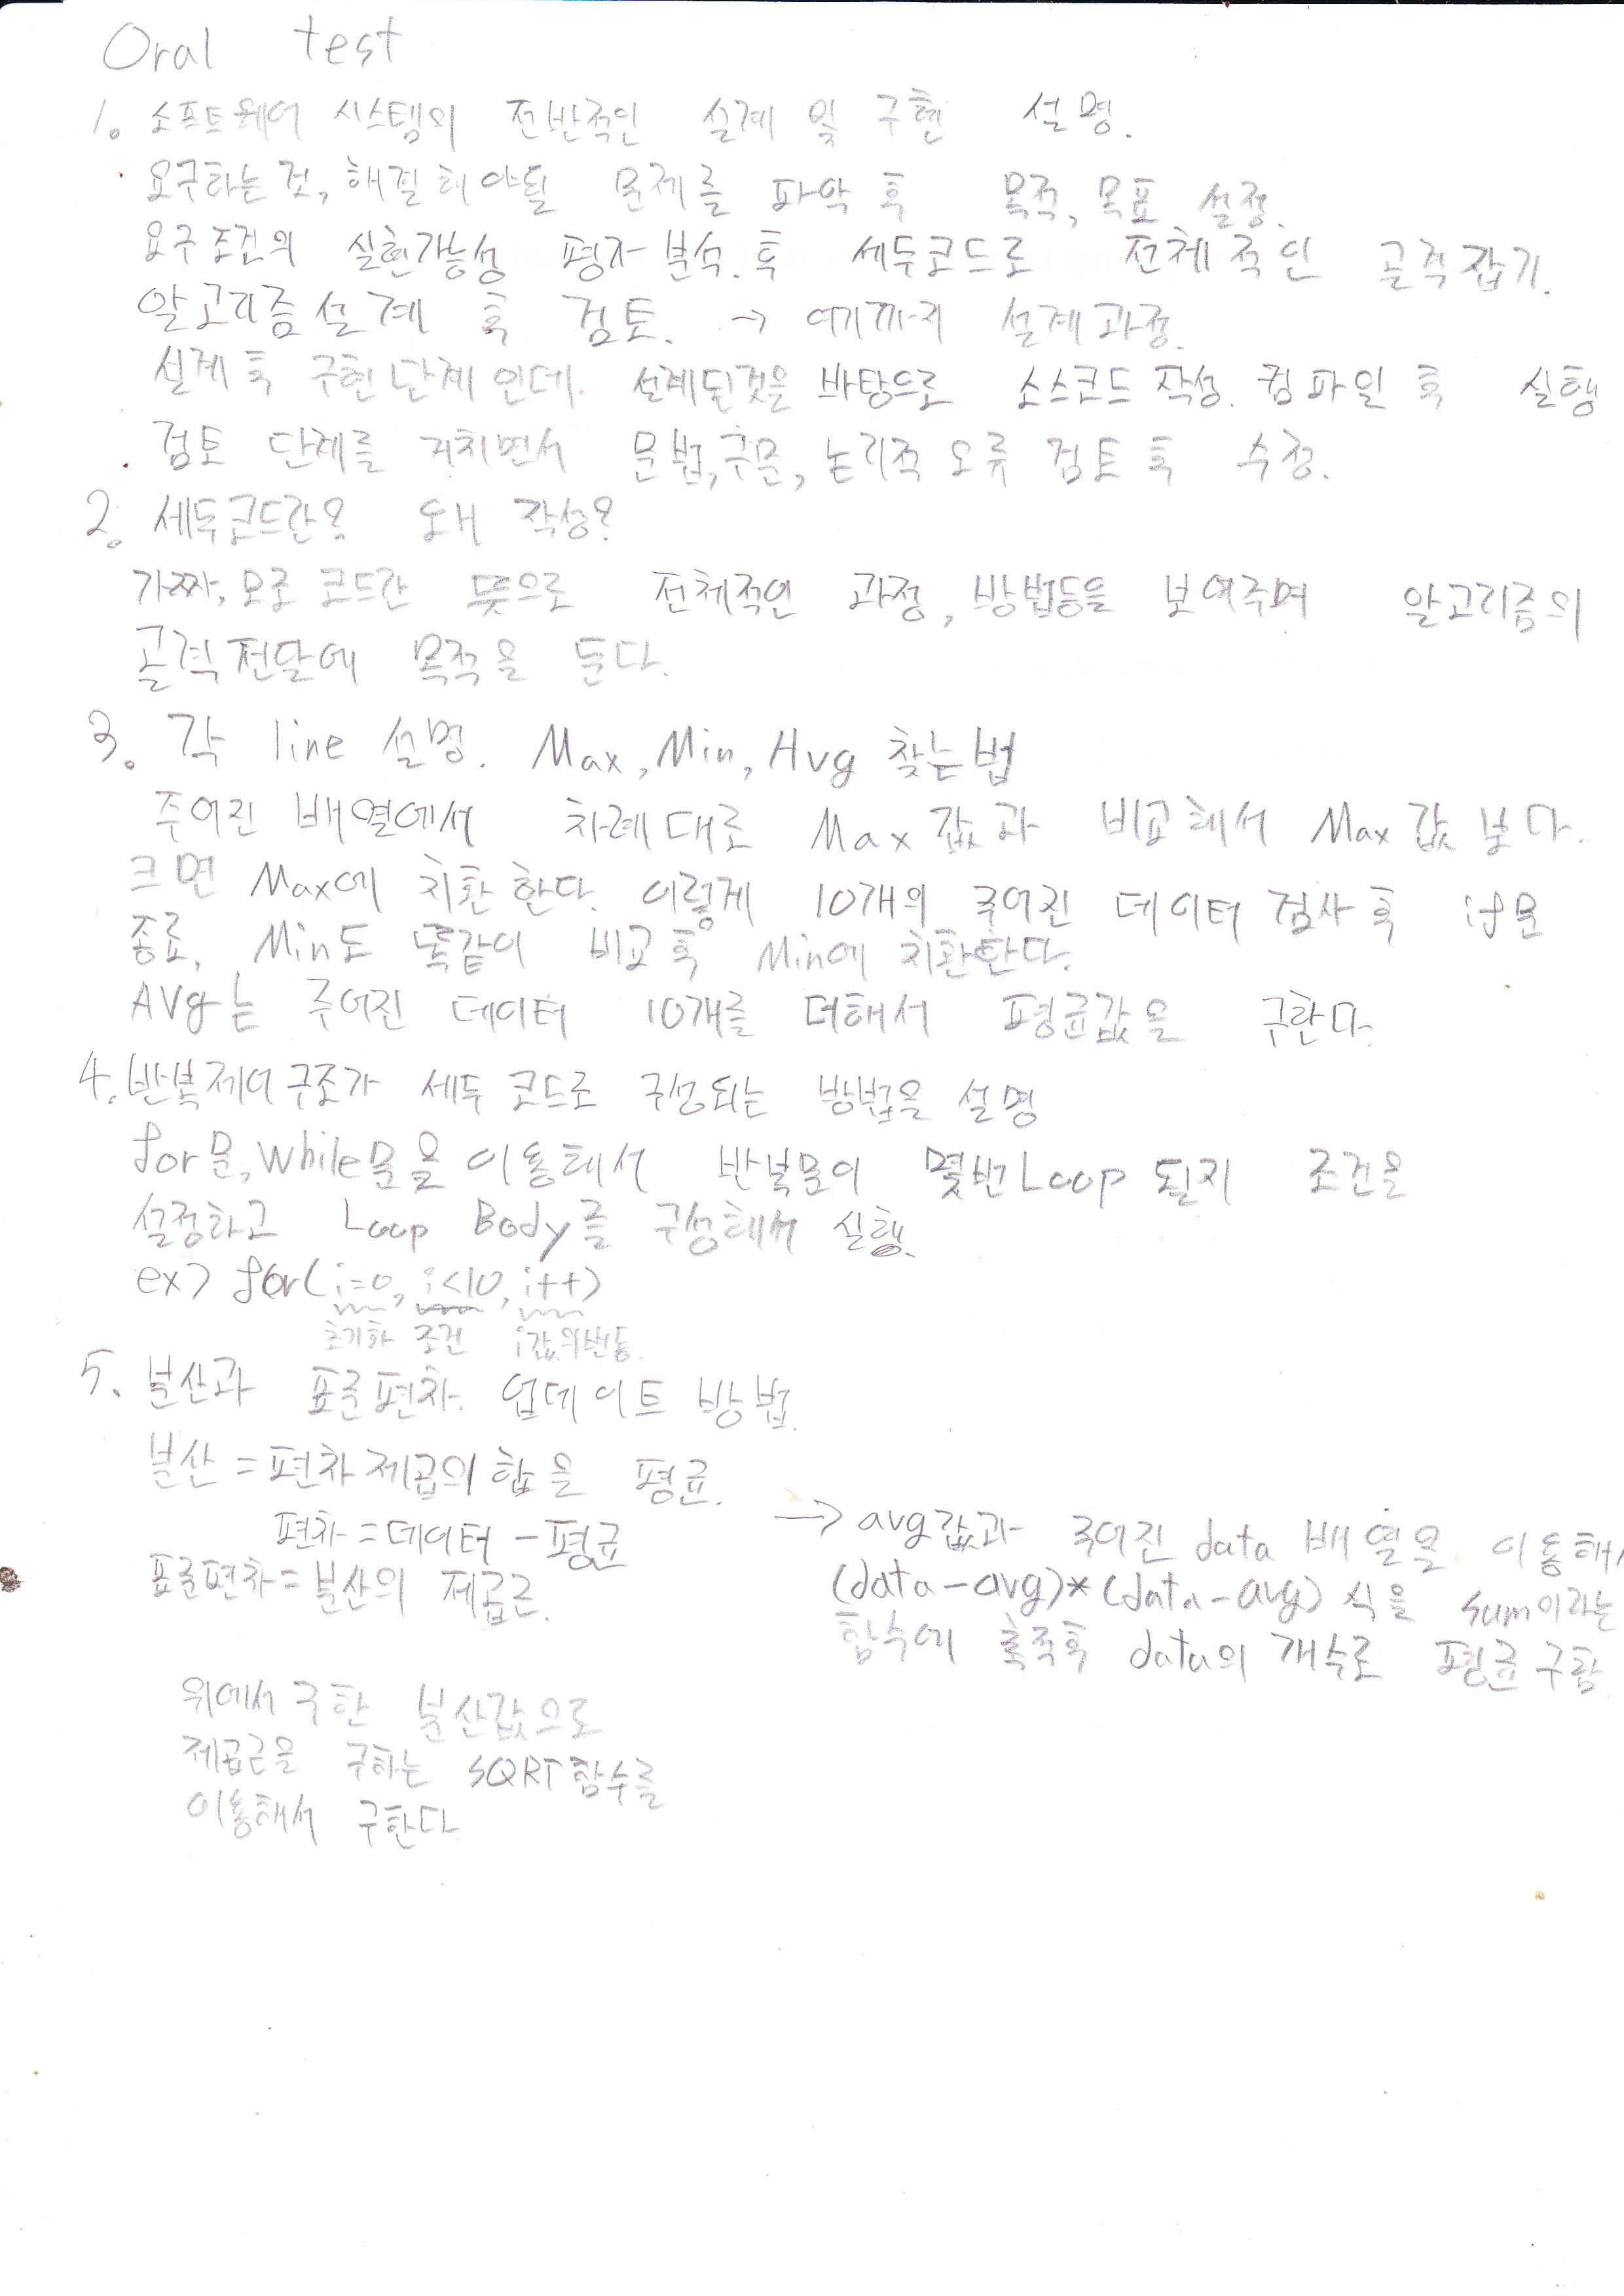 Oral test
1. 소프트웨어 시스템의 전반적인 설계 및 구현 설명.
요구하는 것, 해결해야될 문제를 파악 후 목적, 목표 설정.
요구조건의 실현가능성 평가분석. 후 세두코드로 전체적인 골격잡기.
알고리즘설계 후 검토. → 여기까지 설계과정.
설계 후 구현단계인데 설계된것을 바탕으로 소스코드 작성. 컴파일 후 실행
검토 단계를 거치면서 문법, 구문, 논리적 오류 검토 후 수정.
2. 세두코드란? 왜 작성?
가짜, 모조 코드란 뜻으로 전체적인 과정, 방법등을 보여주며 알고리즘의
골격전달에 목적을 둔다.
3. 각 line 설명. Max, Min, Avg 찾는법
주어진 배열에서 차례대로 Max 값과 비교해서 Max 값 보다.
크면 Max에 치환한다. 이렇게 10개의 주어진 데이터 검사 후 if문
종료, Min도 똑같이 비교 후 Min에 치환한다.
AVg는 주어진 데이터 10개를 더해서 평균값을 구한다.
4. 반복제어구조가 세두코드로 구성되는 방법을 설명
for문, while문을 이용해서 반복문이 몇번 Loop 될지 조건을
설정하고 Loop Body를 구성해서 실행.
ex> for(i=0, i<10, i++)
초기화 조건 i값의변동.
5. 분산과 표준편차 업데이트 방법.
분산 = 편차제곱의 합을 평균.
편차 = 데이터 - 평균
표준편차 = 분산의 제곱근.
→ avg값과 주어진 data 배열을 이용해
(data-avg)*(data-avg) 식을 sum이라는
함수에 축적후 data의 개수로 평균구함
위에서 구한 분산값으로
제곱근을 구하는 SQRT함수를
이용해서 구한다